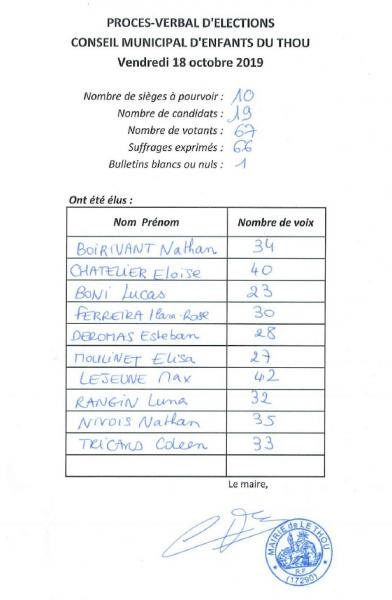 PROCES-VERBAL D'ELECTIONS
CONSEIL MUNICIPAL D'ENFANTS DU THOU
Vendredi 18 octobre 2019
Nombre de sièges à pourvoir : 10
Nombre de candidats : 19
Nombre de votants : 67
Suffrages exprimés : 66
Bulletins blancs ou nuls : 1
Ont été élus :
Nom Prénom Nombre de voix
BOIRIVANT Nathan 34
CHATELIER Eloise 40
BONI Lucas 23
FERREIRA Ilam-Rose 30
DEROMAS Esteban 28
MOULINET Elisa 27
LEJEUNE Max 42
RANGIN Luna 32
NIVOIS Nathan 35
TRICARD Coleen 33
Le maire,
MAIRIE de LE THOU
R.F
(17290)